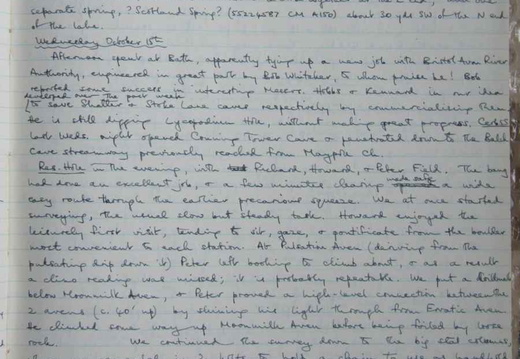 separate spring, ? Scotland Spring? (55226587 CM A150) about 30 yds SW. of the N end
of the lake.
Wednesday October 15th
Afternoon spent at Bath, apparently tying up a new job with Bristol Avon River
Authority, engineered in great part by Bob Whitaker, to whom praise be! Bob
reported some success in interesting Messrs. Hobbs & Kennard in our idea
developed over the past week
to save Shatter & Stoke Lane caves respectively by commercialising them
He is still digging Lycopodium Hole, without making great progress. Cerberus
last Weds. night opened Conning Tower Cave & penetrated down to the
Cave streamway previously reached from Magpie Ch.
Res. Hole in the evening, with Richard, Howard, & Peter . The
had done an excellent job, & a few minutes clearing made out a wide
easy route through the earlier precarious squeeze. We at once started
surveying, the usual slow but steady task. Howard enjoyed the
leisurely first visit, tending to sit, gaze, & pontificate from the boulder
most convenient to each station. At Pulsation Aven (deriving from the
pulsating drip down it) Peter left booking to climb about, & as a result
a clino reading was missed; it is probably repeatable. We put a
below Moonmilk Aven, & Peter proved a high-level connection between the
2 avens (c. 40' up) by shining his light through from Erratic Aven
he climbed some way up Moonmilk Aven before being foiled by loose
rock. We continued the survey down to the big stal columns,